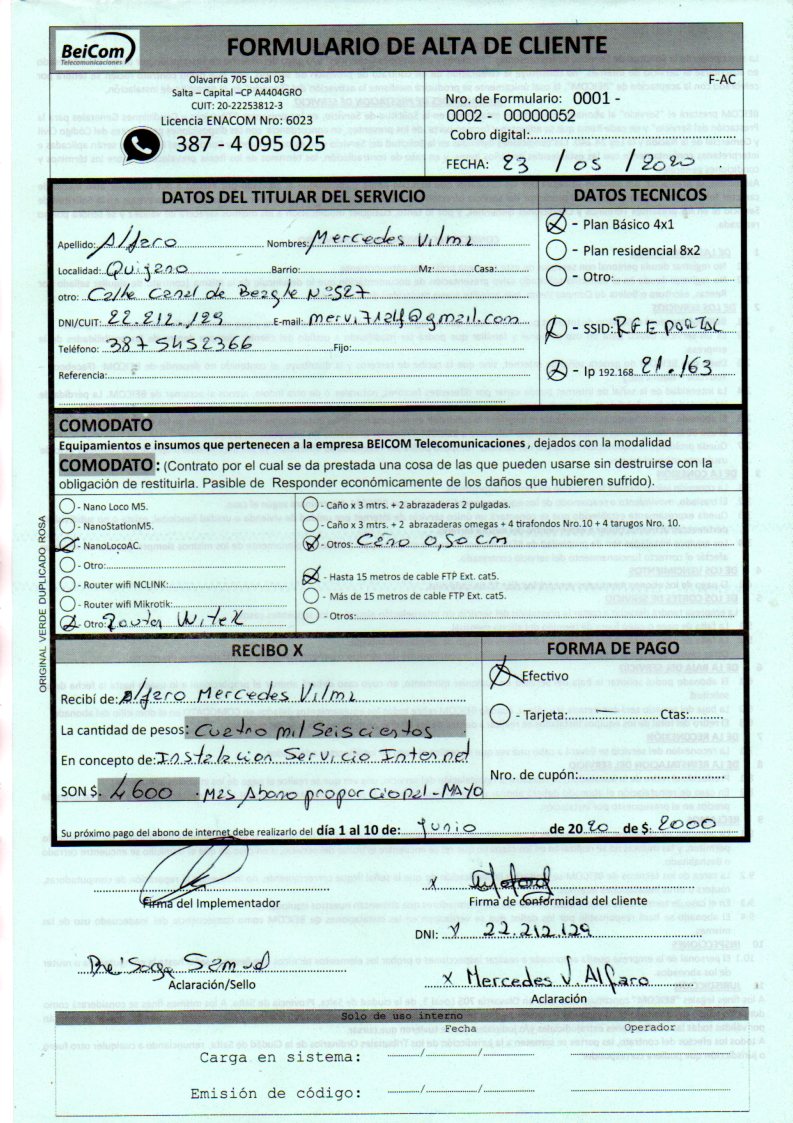 BeiCom
Telecomunicaciones
FORMULARIO DE ALTA DE CLIENTE
Olavarría 705 Local 03
Salta – Capital –CP A4404GRO
CUIT: 20-22253812-3
Licencia ENACOM Nro: 6023
387 - 4 095 025
F-AC
Nro. de Formulario: 0001 -
0002 - 00000052
Cobro digital:
FECHA: 23 / 05 / 2020
DATOS DEL TITULAR DEL SERVICIO
Apellido: Alfaro Nombres: Mercedes Vilma
Localidad: Quijano Barrio: Mz: Casa:
otro: Calle Canal de Beagle N°527
DNI/CUIT: 22.212.129 E-mail: mervi7124@gmail.com
Teléfono: 387 5452366 Fijo:
Referencia:
DATOS TECNICOS
- Plan Básico 4x1
- Plan residencial 8x2
- Otro:
- SSID: RFE PORTAL
- Ip 192.168. 21.163
COMODATO
Equipamientos e insumos que pertenecen a la empresa BEICOM Telecomunicaciones, dejados con la modalidad
COMODATO: (Contrato por el cual se da prestada una cosa de las que pueden usarse sin destruirse con la
obligación de restituirla. Pasible de Responder económicamente de los daños que hubieren sufrido).
- Nano Loco M5.
- NanoStationM5.
- NanoLocoAC.
- Otro:
- Router wifi NCLINK:
- Router wifi Mikrotik:
- Otro: Router Witek
- Caño x 3 mtrs. + 2 abrazaderas 2 pulgadas.
- Caño x 3 mtrs. + 2 abrazaderas omegas + 4 tirafondos Nro.10 + 4 tarugos Nro. 10.
- Otros: Caño 0,50 cm
- Hasta 15 metros de cable FTP Ext. cat5.
- Más de 15 metros de cable FTP Ext. cat5.
- Otros:
ORIGINAL VERDE DUPLICADO ROSA
RECIBO X
Recibí de: Alfaro Mercedes Vilma
La cantidad de pesos: Cuatro mil Seiscientos
En concepto de: Instalacion Servicio Internet
SON $. 4600 . Mas Abono proporcional - MAYO
FORMA DE PAGO
Efectivo
- Tarjeta: — Ctas:
Nro. de cupón:
Su próximo pago del abono de internet debe realizarlo del día 1 al 10 de: Junio de 2020 de $: 2000
Firma del Implementador
X
Firma de conformidad del cliente
DNI: X 22.212.129
Samud
Aclaración/Sello
X Mercedes V. Alfaro
Aclaración
Solo de uso interno
Fecha Operador
Carga en sistema: / /
Emisión de código: / /